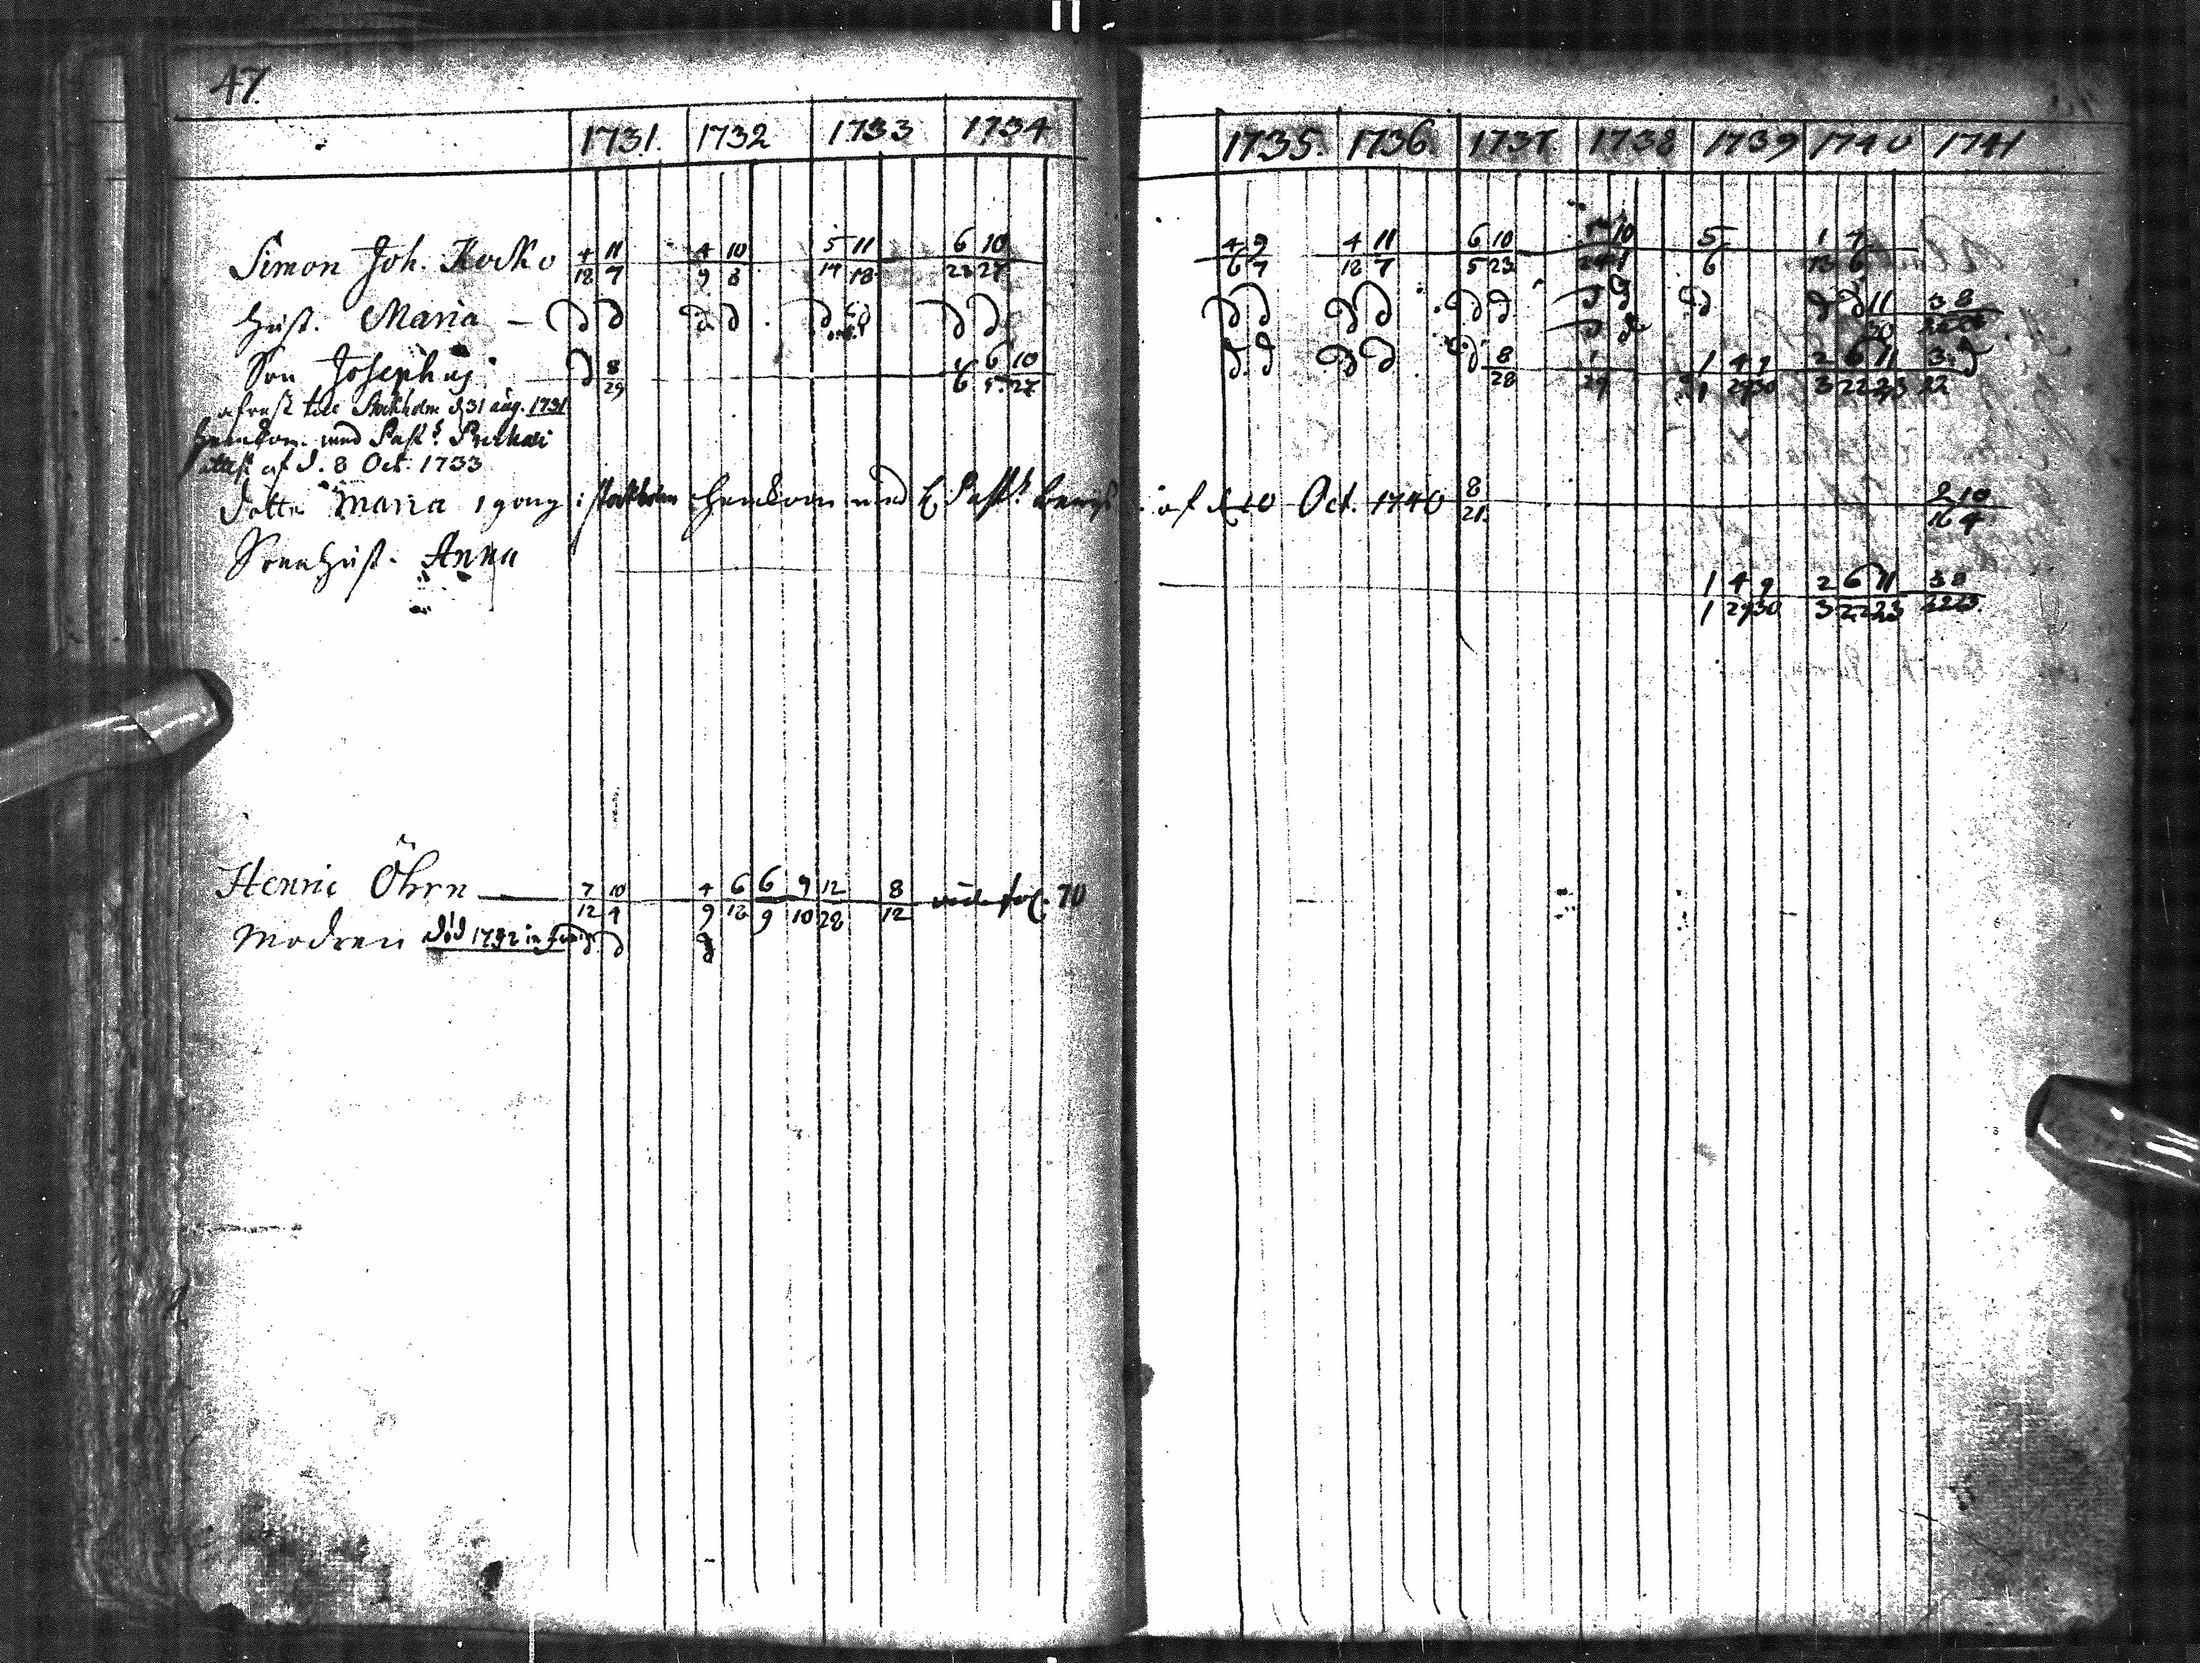 47.
1731. 1732 1733 1734 1735. 1736. 1737. 1738 1739 1740 1741
Simon Joh. Kocko 4/12 11/7 4/9 10/8 5/14 11/18 6/23 10/27 4/6 9/7 4/12 11/7 6/5 10/23 5/6
Hust. Maria — 11/30
Son Josephus 8/29 6/5 10/27 8/28 1/29 1/1 4/29 9/30 2/3 6/22 11/23 3/22
afrest till Stockholm d 31 aug. 1731
hemkom. med Past.
attest af d. 8 Oct. 1733
Dotter Maria 1 gång i Stockholm hemkom med Past. af d. 10 Oct. 1740 8/21
Sonehust. Anna 1/1 4/29 9/30 2/3 6/22 11/23 3/22 8/23
Henric Öhrn — 7/12 10/4 4/9 6/12 6/9 9/10 12/28 8/12 vide fol. 70
Modren död 1732 in